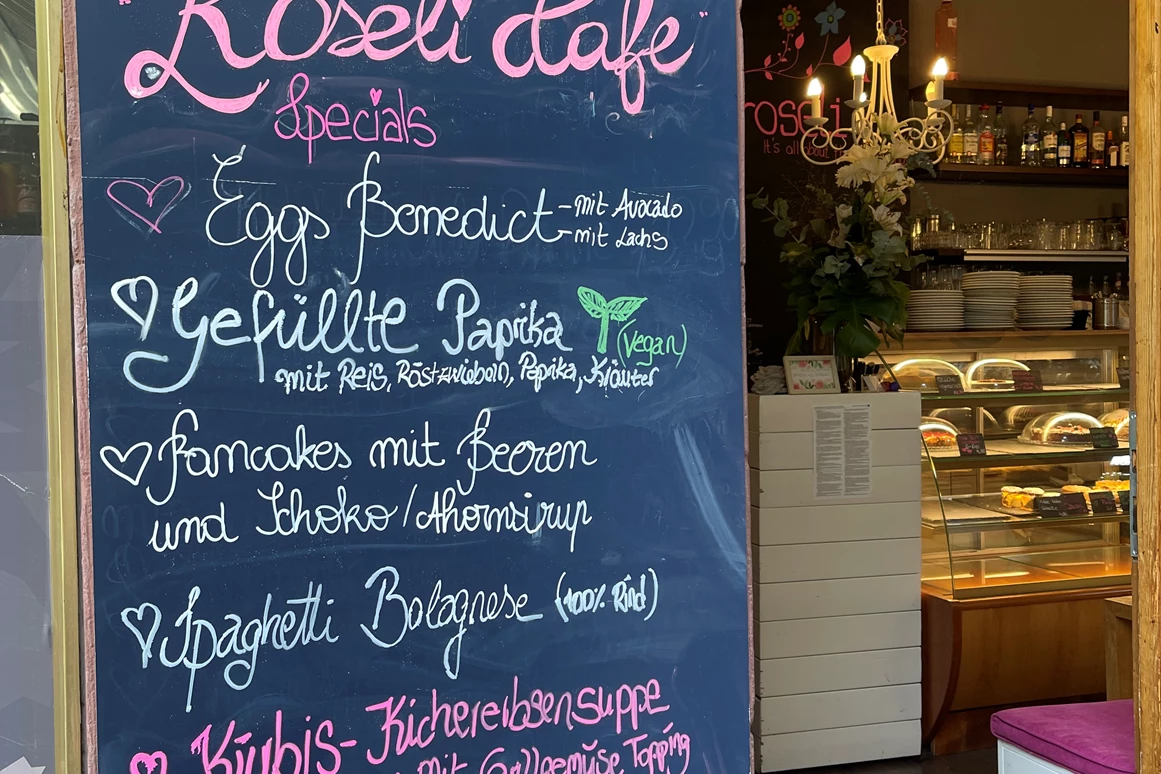 "Roseli Cafe"
Specials
Eggs Benedict - mit Avocado
- mit Lachs
Gefüllte Paprika (Vegan)
mit Reis, Röstzwiebeln, Paprika, Kräuter
Pancakes mit Beeren
und Schoko/Ahornsirup
Spaghetti Bolognese (100% Rind)
Kürbis-Kichererbsensuppe
mit Grillgemüse Topping
roseli
It's all about